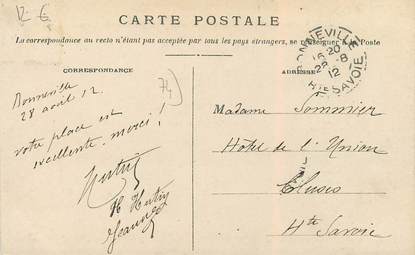 12 €
CARTE POSTALE
La correspondance au recto n'étant pas acceptée par tous les pays étrangers, se renseigner à la Poste
CORRESPONDANCE
ADRESSE
BONNEVILLE
16 20
28 - 8
12
Hte SAVOIE
74
Bonneville
28 août 12.
votre place est
excellente. merci !
H Hutin
Jeanne
Madame Sommier
Hôtel de l'Union
Cluses
Hte Savoie